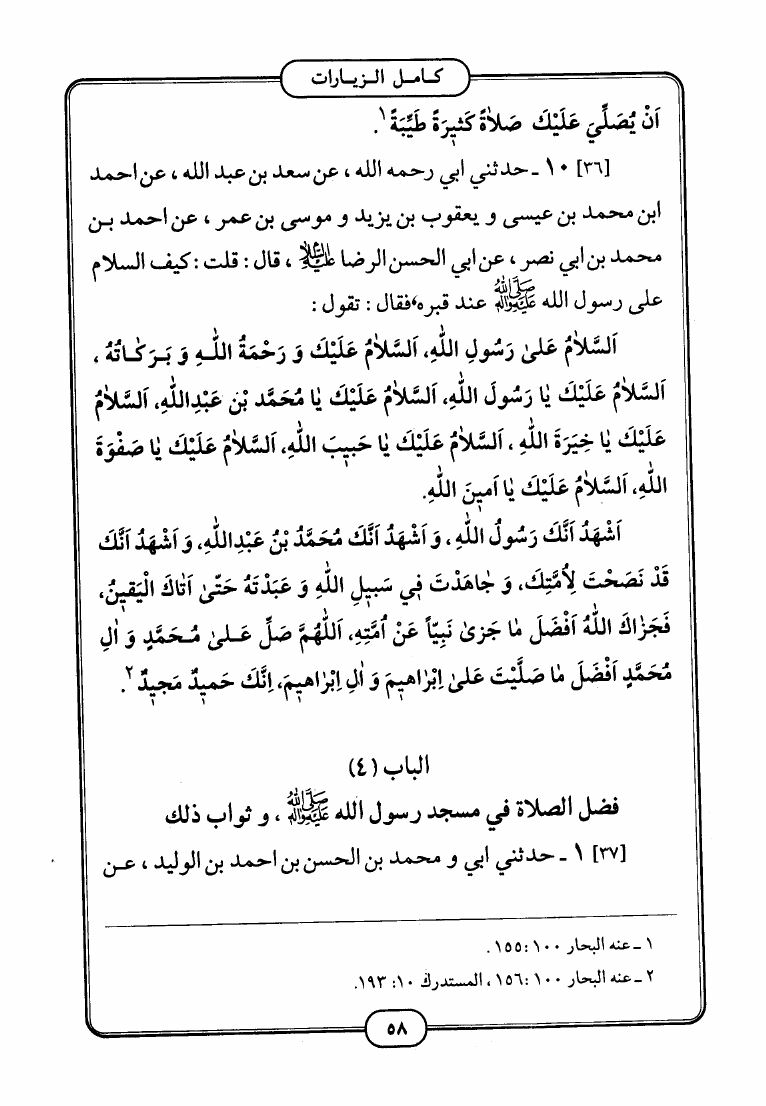 كـامـل الـزيـارات
اَنْ يُصَلِّيَ عَلَيْكَ صَلاٰةً كَثيٖرَةً طَيِّبَةً١.
[٣٦] ١٠ ـ حدثني ابي رحمه الله ، عن سعد بن عبد الله ، عن احمد
ابن محمد بن عيسى و يعقوب بن يزيد و موسى بن عمر ، عن احمد بـن
محمد بن ابي نصر ، عن ابي الحسن الرضا عليه السلام ، قال : قلت : كيف السلام
على رسول الله ﷺ عند قبره، فقال : تقول :
اَلسَّلاٰمُ عَلىٰ رَسُولِ اللّٰهِ، اَلسَّلاٰمُ عَلَيْكَ وَ رَحْمَةُ اللّٰـهِ وَ بَـرَكٰـاتُهُ ،
اَلسَّلاٰمُ عَلَيْكَ يٰا رَسُولَ اللّٰهِ، اَلسَّلاٰمُ عَلَيْكَ يٰا مُحَمَّد بْن عَبْدِاللّٰهِ، اَلسَّلاٰمُ
عَلَيْكَ يٰا خِيَرَةَ اللّٰهِ ، اَلسَّلاٰمُ عَلَيْكَ يٰا حَبيٖبَ اللّٰهِ، اَلسَّلاٰمُ عَلَيْكَ يٰا صَفْوَةَ
اللّٰهِ، اَلسَّلاٰمُ عَلَيْكَ يٰا اَميٖنَ اللّٰهِ.
اَشْهَدُ اَنَّكَ رَسُولُ اللّٰهِ ، وَ اَشْهَدُ اَنَّكَ مُحَمَّدُ بْنُ عَبْدِاللّٰهِ، وَ اَشْهَدُ اَنَّكَ
قَدْ نَصَحْتَ لِاُمَّتِكَ، وَ جٰاهَدْتَ فيٖ سَبيٖلِ اللّٰهِ وَ عَبَدْتَهُ حَتّىٰ اَتٰاكَ الْيَقيٖنُ،
فَجَزٰاكَ اللّٰهُ اَفْضَلَ مٰا جَزىٰ نَبِيّاً عَنْ اُمَّتِهِ، اَللّٰهُمَّ صَلِّ عَـلىٰ مُـحَمَّدٍ وَ اٰلِ
مُحَمَّدٍ اَفْضَلَ مٰا صَلَّيْتَ عَلىٰ اِبْرٰاهيٖمَ وَ اٰلِ اِبْرٰاهيٖمَ، اِنَّكَ حَميٖدٌ مَجيٖدٌ٢.
الباب (٤)
فضل الصلاة في مسجد رسول الله ﷺ ، و ثواب ذلك
[٣٧] ١ ـ حدثني ابي و محمد بن الحسن بن احمد بن الوليد ، عـن
١ ـ عنه البحار ١٠٠:١٥٥.
٢ ـ عنه البحار ١٠٠: ١٥٦ ، المستدرك ١٠: ١٩٣.
٥٨